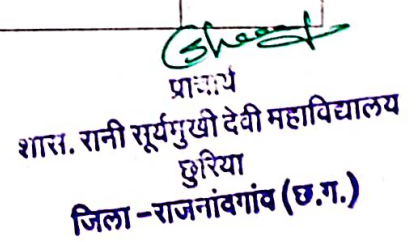 प्राचार्य
शास. रानी सूर्यमुखी देवी महाविद्यालय
छुरिया
जिला - राजनांवगांव (छ.ग.)